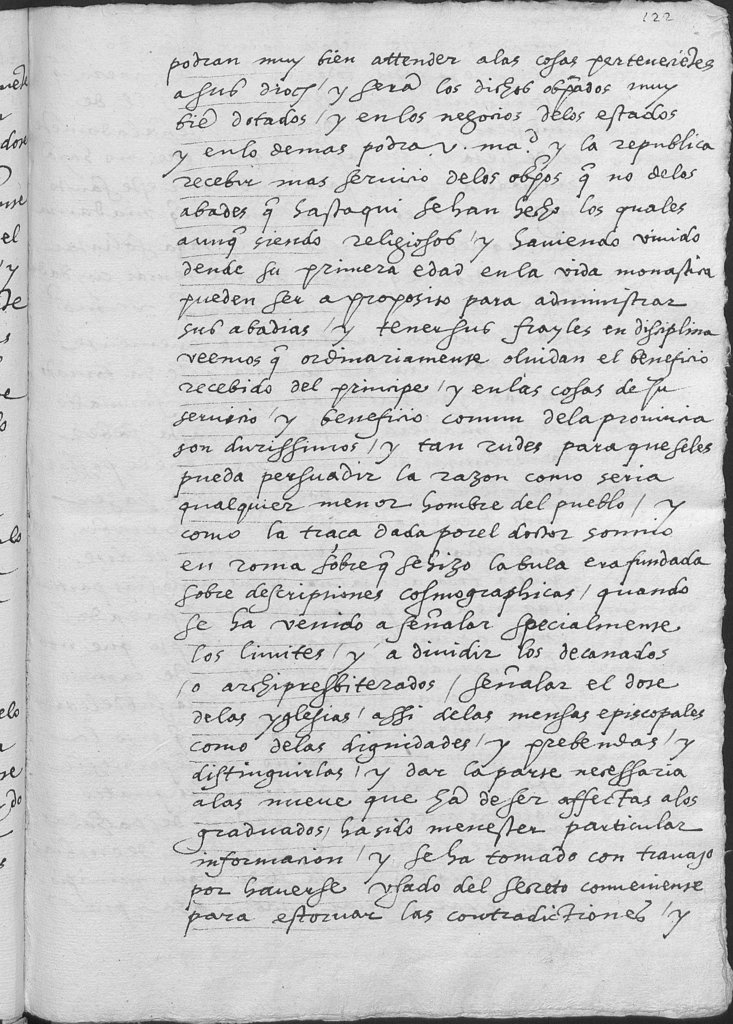 122
podran muy bien attender a las cosas pertenecie͂tes
a sus dioc̃ / y sera͂ los dichos obpados muy
bie͂ dotados / y en los negocios de los estados
y en lo demas podra v. ma.d y la republica
recebir mas servicio de los obpos q̃ no de los
abades q̃ hasta qui se han hecho los quales
aunq̃ siendo religiosos / y haviendo vivido
dende su primera edad en la vida monastica
pueden ser a proposito para administrar
sus abadias / y tener sus frayles en disciplina
veemos q̃ ordinariamente olvidan el beneficio
recebido del principe / y en las cosas de su
servicio / y beneficio comun de la provincia
son durissimos / y tan rudes para que se les
pueda persuadir la razon como seria
qualquier menor hombre del pueblo / y
como la traça dada por el doctor sonnio
en roma sobre q̃ se hizo la bula era fundada
sobre descriptiones cosmographicas / quando
se ha venido a señalar specialmente
los limites / y a dividir los decanados
/ o archipresbiterados / señalar el dote
de las yglesias / assi de las mensas episcopales
como de las dignidades / y prebendas / y
distinguirlas / y dar la parte necessaria
a las nueve que ha͂ de ser affectas a los
graduados / ha sido menester particular
informacion / y se ha tomado con travajo
por haverse usado del secreto conveniente
para estorvar las contradictiones / y